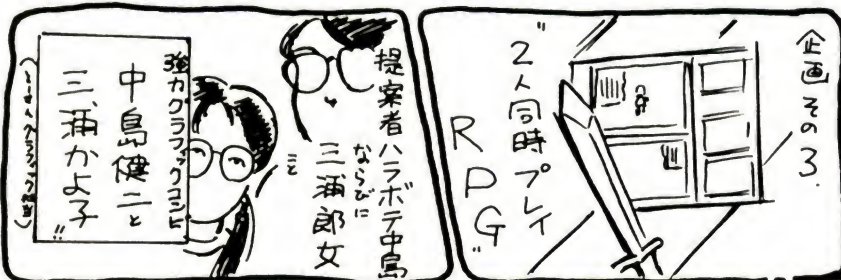 企画その3.
"2人同時プレイ
RPG"
提案者ハラボテ中島
ならびに
三浦郎女
こと
強力グラフィックコンビ
中島健二と
三浦かよ子!!